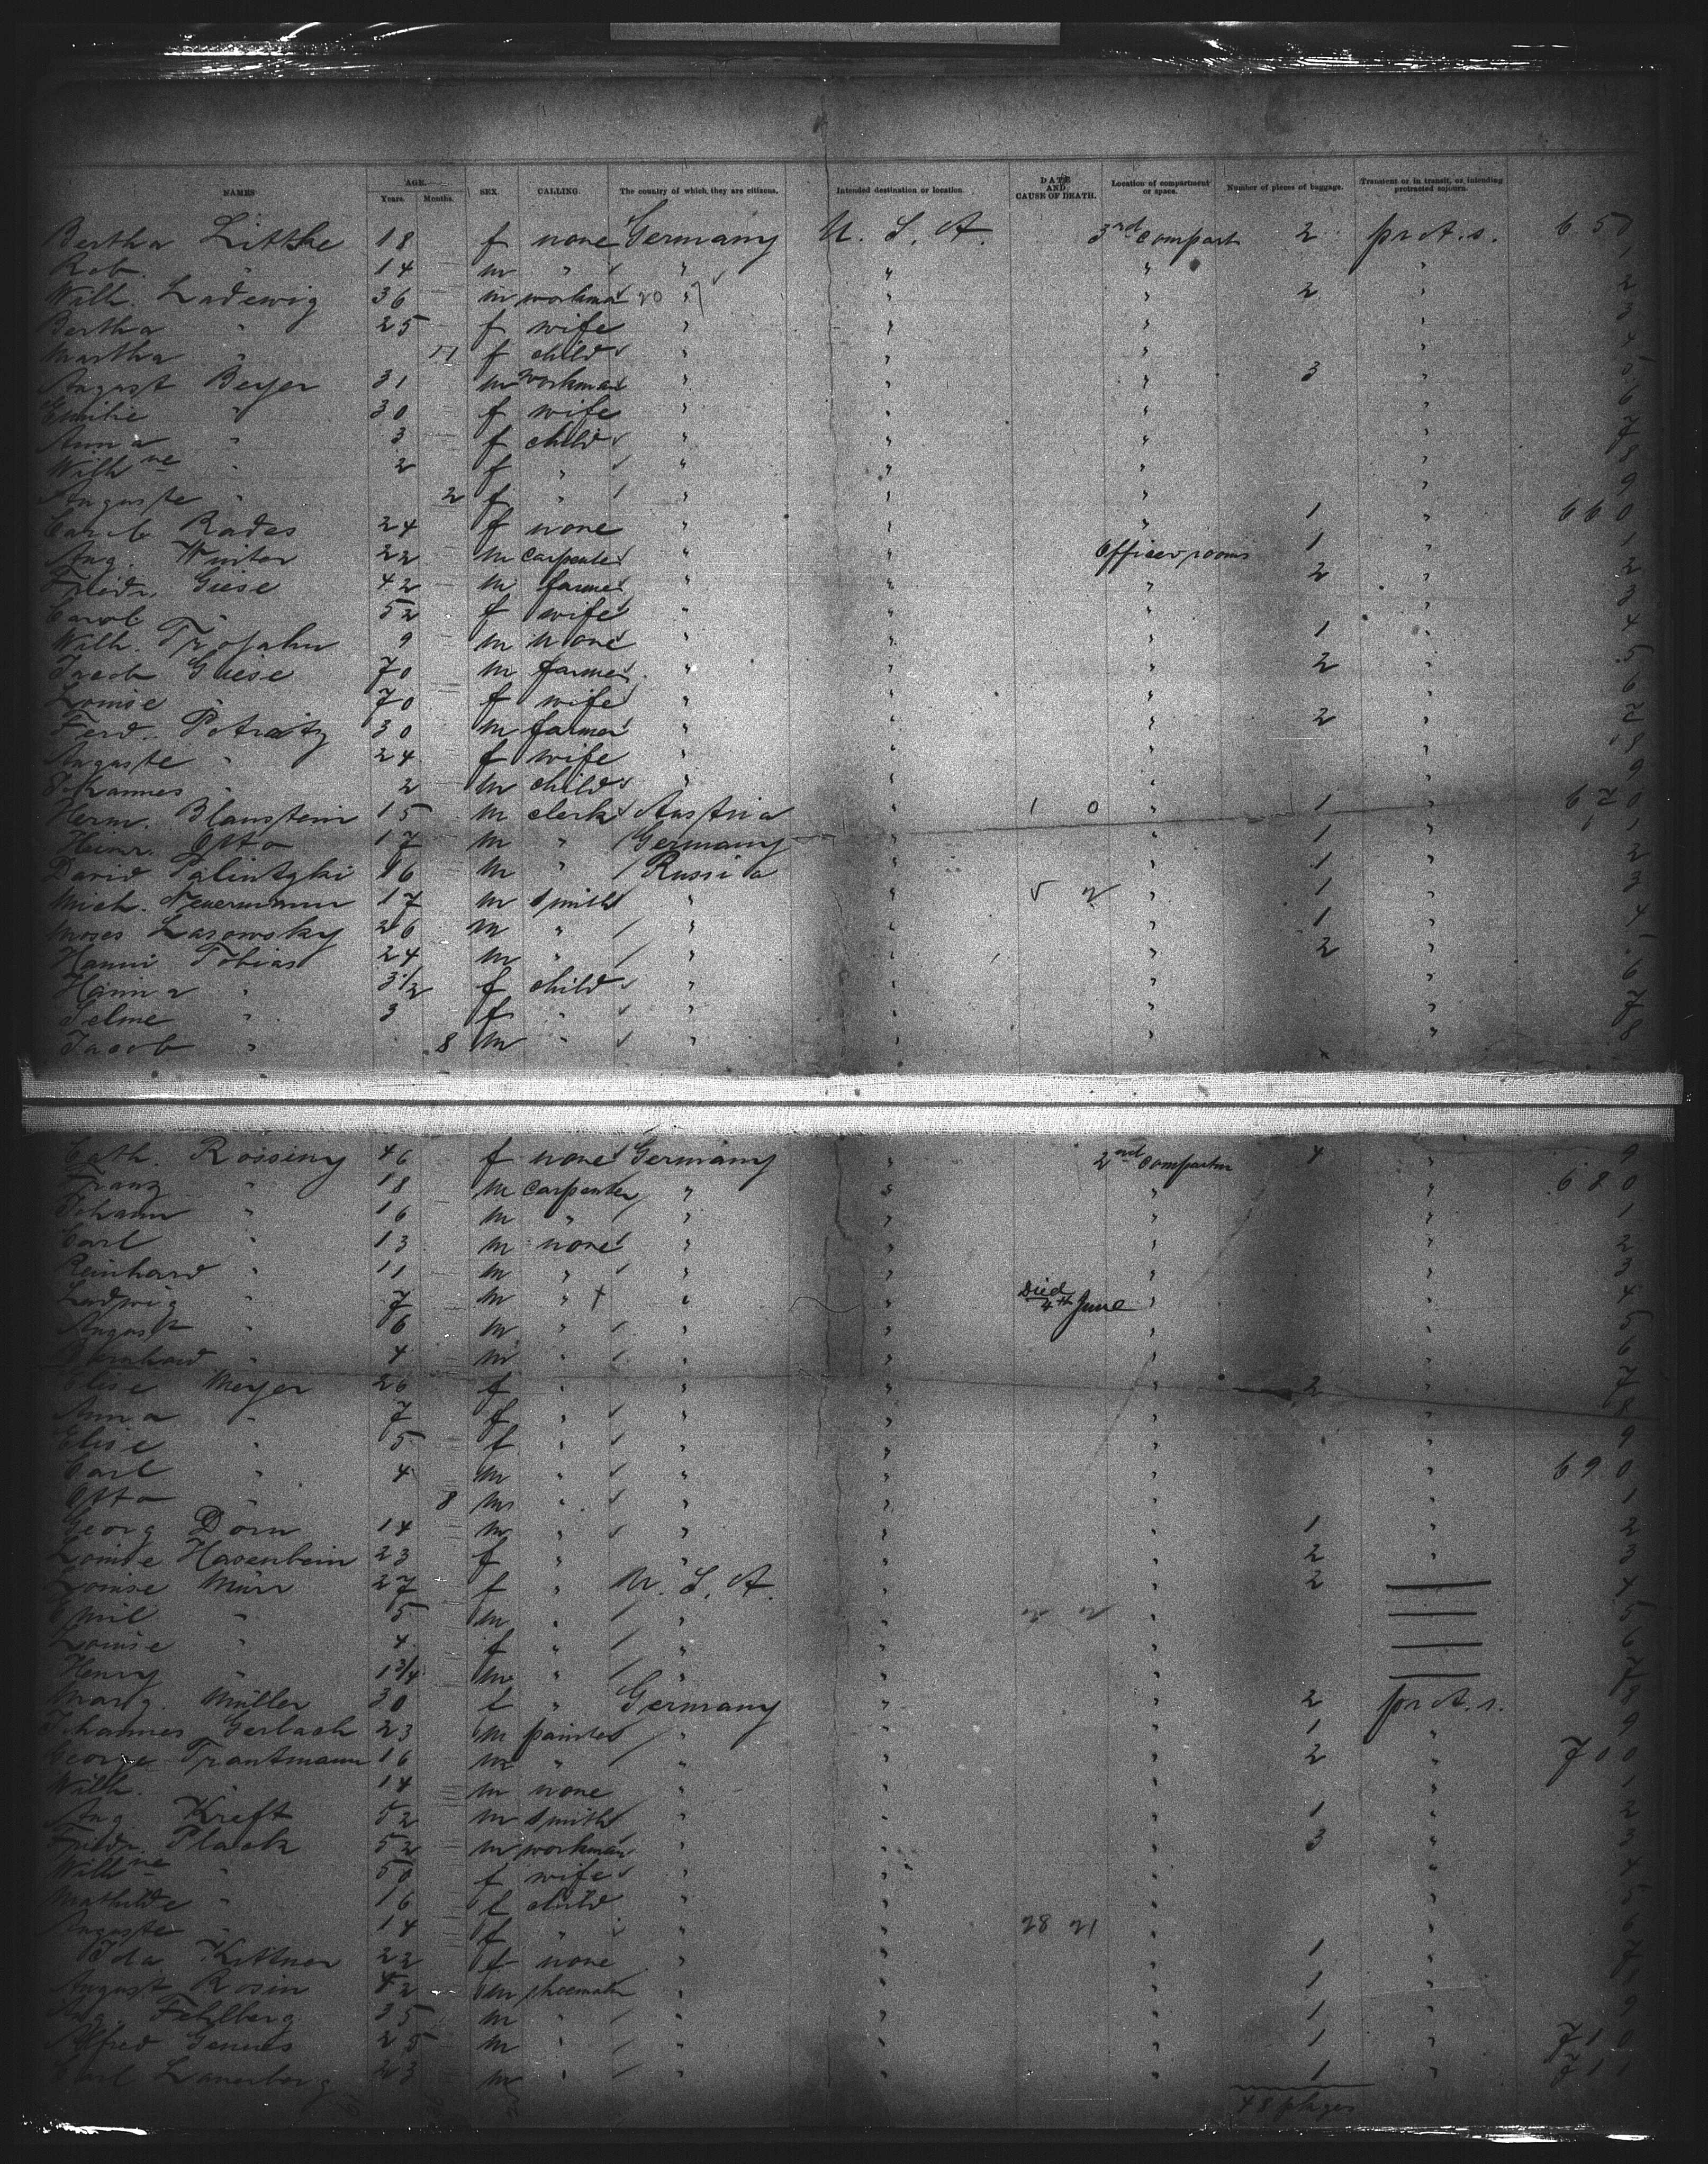 NAMES AGE. Years. Months. SEX. CALLING. The country of which they are citizens. Intended destination or location. DATE AND CAUSE OF DEATH. Location of compartment or space. Number of pieces of baggage. Transient or in transit, or intending protracted sojourn.
Bertha Littke 18 f none Germany U. S. A. 3rd compart 2 prot. s. 650
Rob. " 14 m " " " " " 1
Wilh. Ladewig 36 m workman 20 " " " 2 " 2
Bertha " 25 f wife " " " " 3
Martha " 11 f child " " " " 4
August Beyer 31 m workman " " " 3 " 5
Emilie " 30 f wife " " " " 6
Anna " 3 f child " " " " 7
Wilhne " 2 f " " " " " 8
Auguste " 2 f " " " " " 9
Carol. Rades 24 f none " " " 1 " 660
Aug. Winter 22 m carpenter " " Officer rooms 1 " 1
Friedr. Giese 42 m farmer " " " 2 " 2
Carol. " 52 f wife " " " " 3
Wilh. Trojahn 9 m none " " " 1 " 4
Jacob Giese 70 m farmer " " " 2 " 5
Louise " 70 f wife " " " " 6
Ferd. Potratz 30 m farmer " " " 2 " 7
Auguste " 24 f wife " " " " 8
Johannes " 2 m child " " " " 9
Herm. Blaustein 15 m clerk Austria " 1 0 " 1 " 670
Heinr. Otto 17 m " Germany " " 1 " 1
David Palintzki 16 m " Russia " " 1 " 2
Mich. 17 m smith " " 5 2 " 1 " 3
Moses Lasowsky 26 m " " " " 1 " 4
Hanni Tobias 24 m " " " " 2 "
Hanna " 3 1/2 f child " " " " 6
Selme " 3 f " " " " " 7
Jacob " 8 m " " " " " 8
Cath. Rossing 46 f none Germany " 2nd compartm 4 " 9
Franz " 18 m carpenter " " " " 680
Johann " 16 m " " " " " 1
Carl " 13 m none " " " " 2
Reinhard " 11 m " " " " " 3
Ludwig " 7 m " † " " Died 4th June " " 4
August " 6 m " " " " " 5
Bernhard " 4 m " " " " " 6
Elise Meyer 26 f " " " " 2 " 7
Anna " 7 f " " " " " 8
Elise " 5 f " " " " " 9
Carl " 4 m " " " " " 690
Otto " 8 m " " " " " 1
Georg Dorn 14 m " " " " 1 " 2
Louise Hasenbein 23 f " " " " 2 " 3
Louise Mürr 27 f " U. S. A. " " 2 — 4
Emil " 5 m " " " " — 5
Louise " 4 f " " " " — 6
Henry " 1 3/4 m " " " " — 7
Marg. Müller 30 f " Germany " " 2 prot. s. 8
Johannes Gerlach 23 m painter " " " 1 " 9
George Trautmann 16 m " " " " 2 " 700
Wilh. " 14 m none " " " " 1
Aug Kreft 52 m smith " " " 1 " 2
Friedr. Plack 52 m workman " " " 3 " 3
Wilhne " 50 f wife " " " " 4
Mathilde " 16 f child " " " " 5
Auguste " 14 f " " " 28 21 " " 6
Ida Kittner 22 f none " " " 1 " 7
August Rosin 42 m shoemaker " " " 1 " 8
Aug. Fehlberg 35 m " " " " 1 " 9
Alfred 25 m " " " " 1 " 710
Carl Lauerberg 23 m " " " " 1 " 711
48